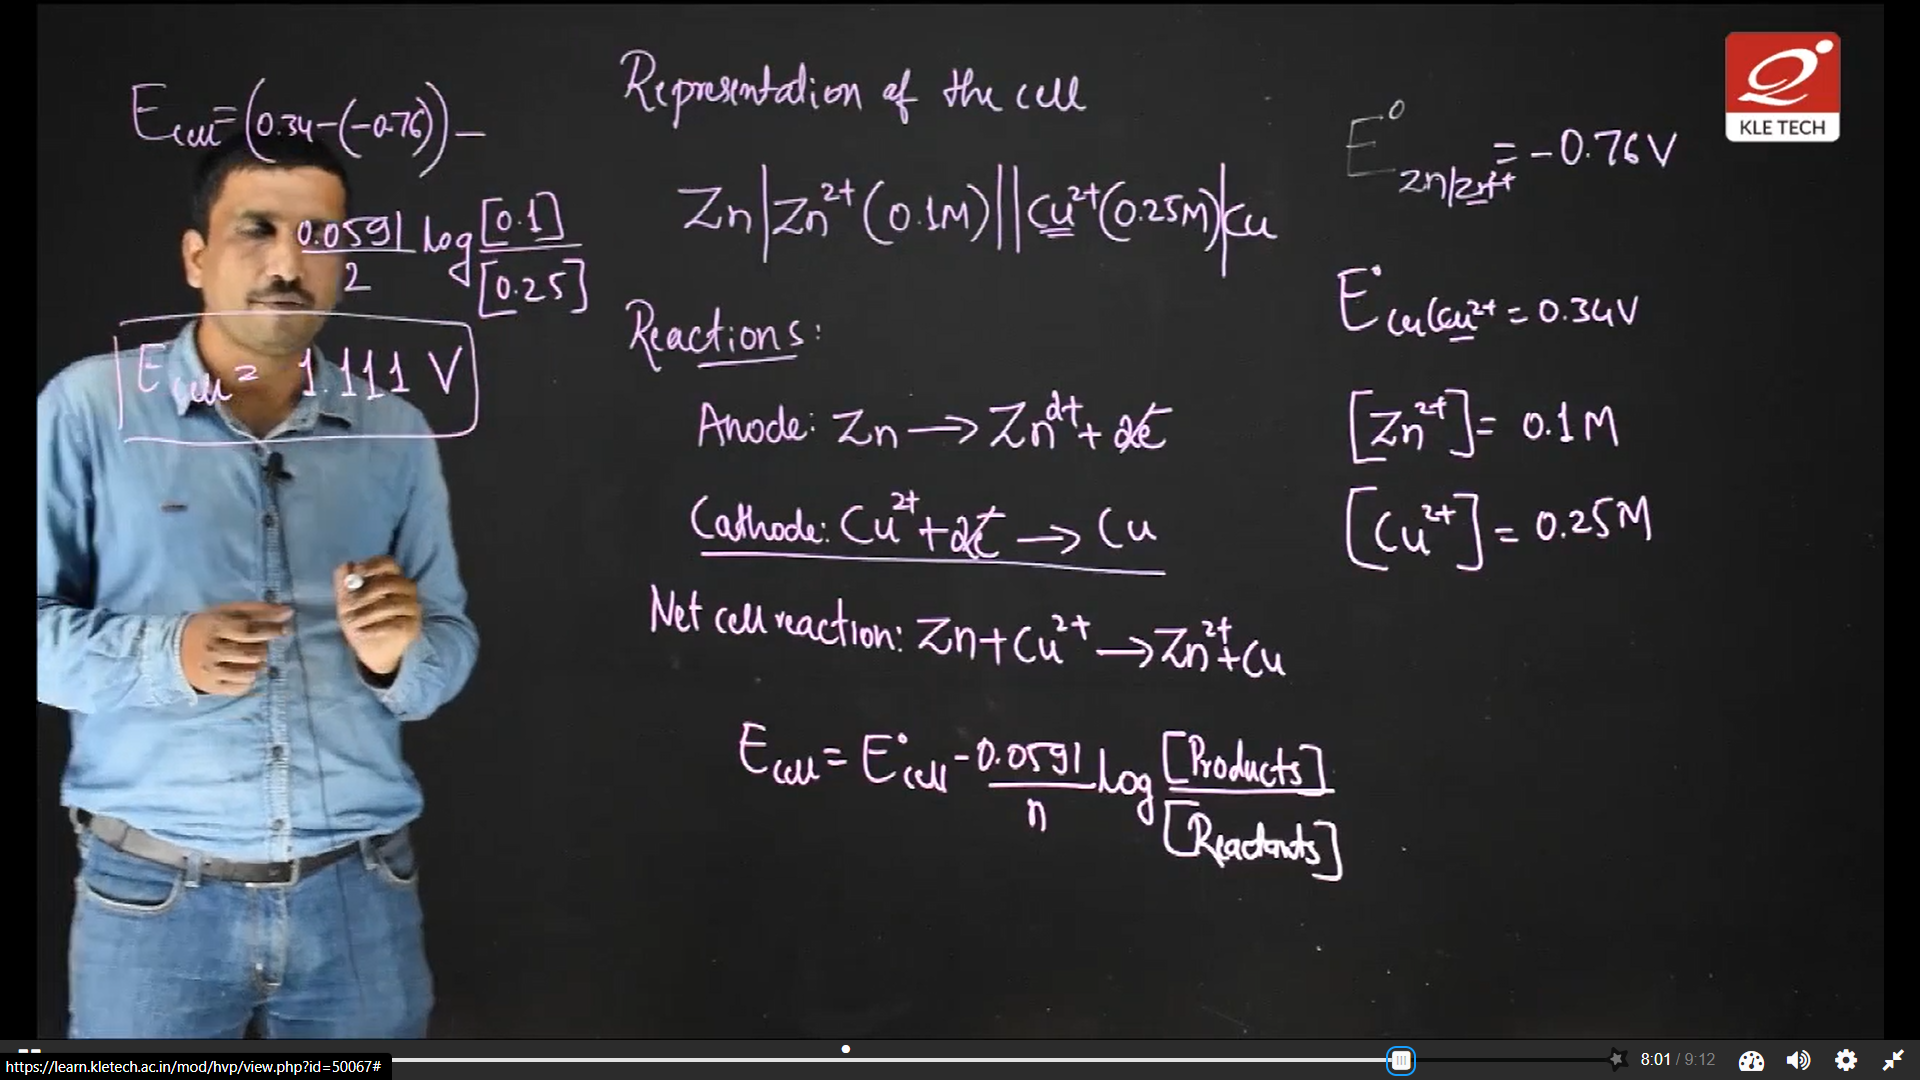 E cell = (0.34-(-0.76)) –
0.0591/2 log [0.1]/[0.25]
E cell = 1.111 V
Representation of the cell
Zn|Zn²⁺(0.1M)||Cu²⁺(0.25M)|Cu
Reactions:
Anode: Zn → Zn²⁺ + 2e⁻
Cathode: Cu²⁺ + 2e⁻ → Cu
Net cell reaction: Zn + Cu²⁺ → Zn²⁺ + Cu
E cell = E° cell - 0.0591/n log [Products]/[Reactants]
E° Zn/Zn²⁺ = -0.76V
E° Cu/Cu²⁺ = 0.34V
[Zn²⁺] = 0.1M
[Cu²⁺] = 0.25M
KLE TECH
https://learn.kletech.ac.in/mod/hvp/view.php?id=50067#
8:01 / 9:12